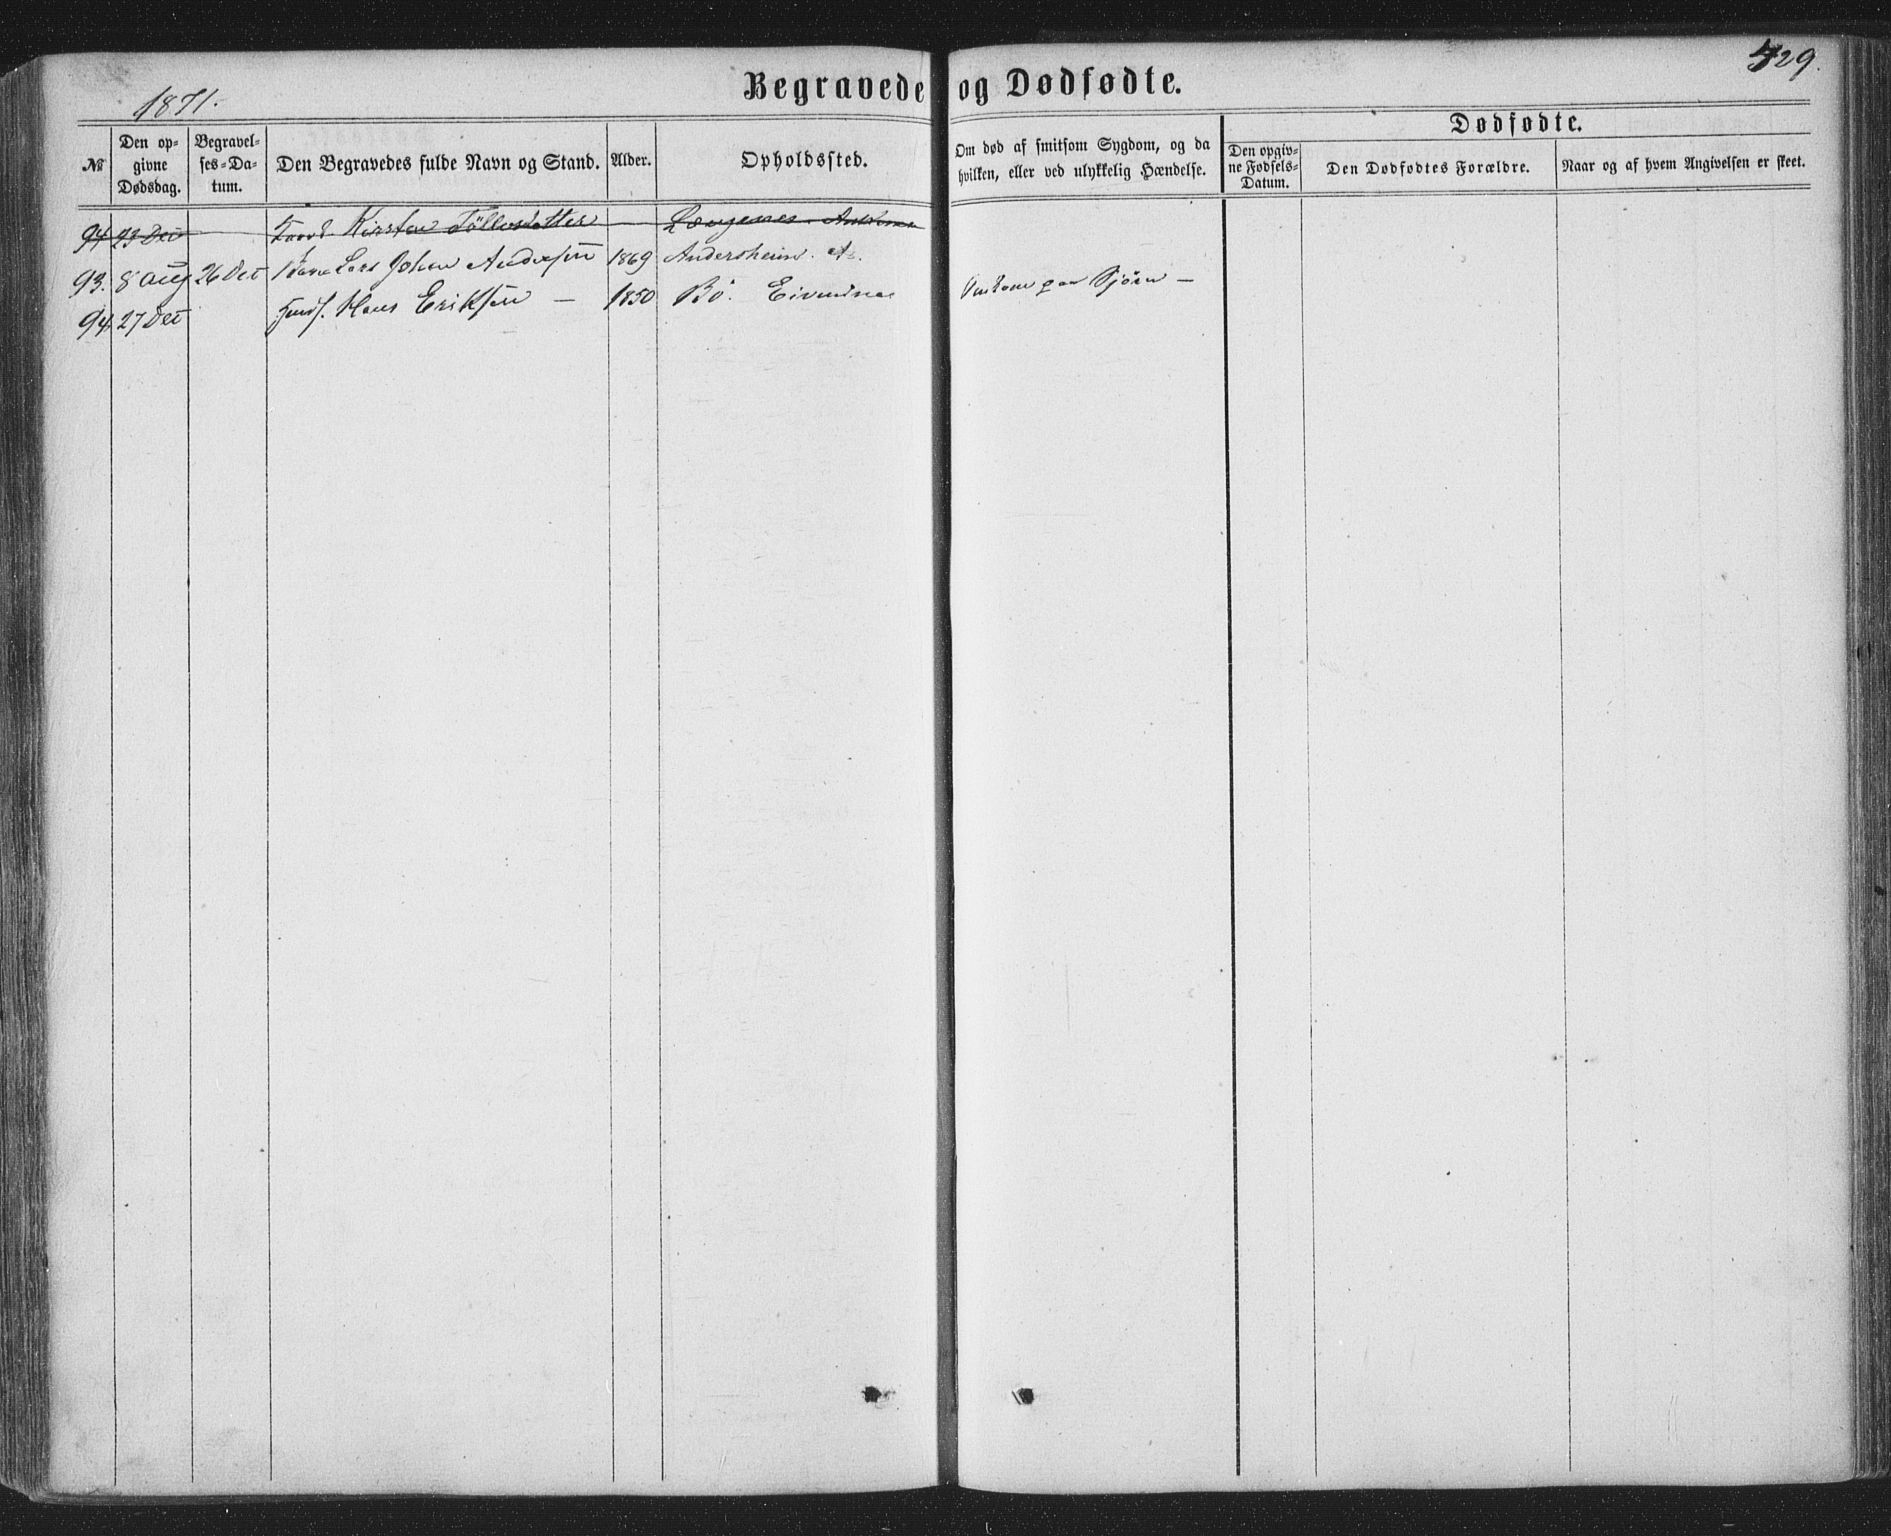 1871.
Begravede og Dødfødte.
429.
№
Den opgivne Dødsdag.
Begravelses-Datum.
Den Begravedes fulde Navn og Stand.
Alder.
Opholdssted.
Om død af smitsom Sygdom, og da hvilken, eller ved ulykkelig Hændelse.
Dødfødte.
Den opgivne Fødsels-Datum.
Den Dødfødtes Forældre.
Naar og af hvem Angivelsen er skeet.
94 23 Dec Kirsten Föllesdatter
93. 8 Aug 26 Dec Lars Johan Andersen 1869 Andersheim.
94 27 Dec Hans Eriksen — 1850 Bö. Omkom paa Sjøen —